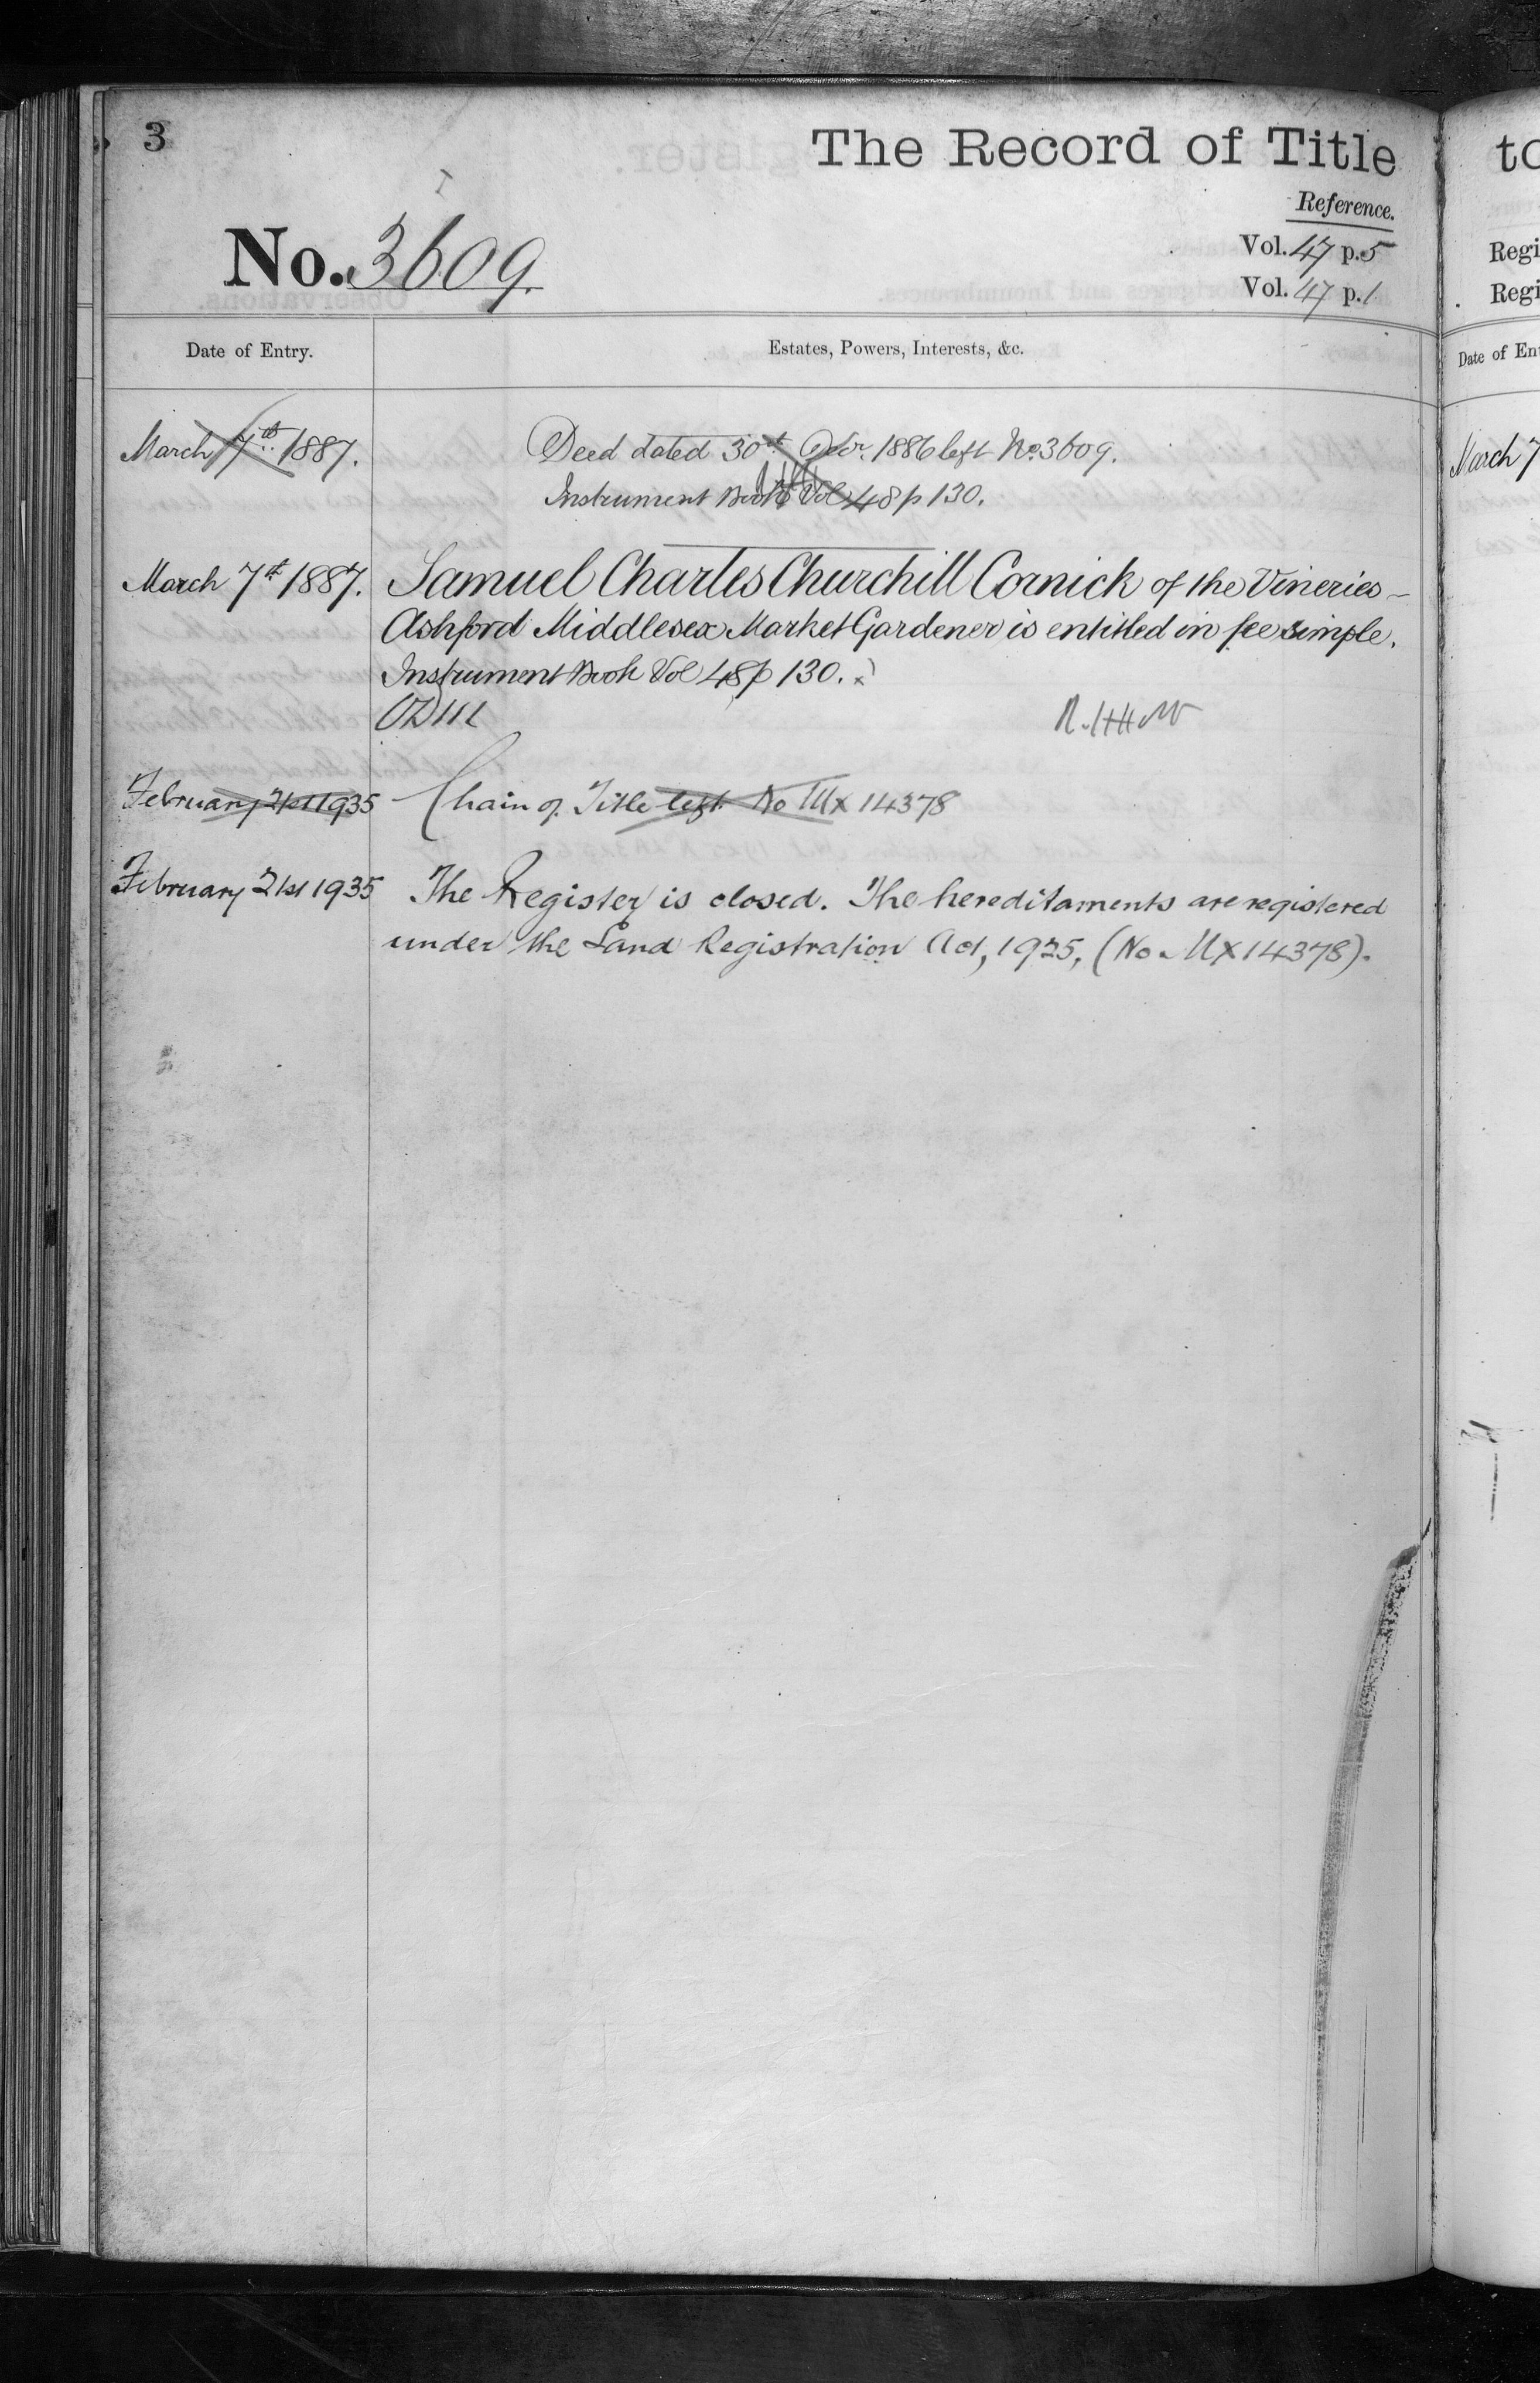 3
The Record of Title
Reference.
No. 3609.
Vol. 47 p. 5
Vol. 47 p. 1
Date of Entry.
Estates, Powers, Interests, &c.
March 7th 1887.
Deed dated 30th 1886 left No. 3609.
Instrument Book Vol 48 p 130.
March 7th 1887.
Samuel Charles Churchill Cornick of the Vineries
Ashford Middlesex Market Gardener is entitled in fee simple.
Instrument Book Vol 48 p 130.
February 21st 1935
Chain of Title left No Mx 14378
February 21st 1935
The Register is closed. The hereditaments are registered
under the Land Registration Act, 1925, (No. MX14378).
to
Regi
Regi
Date of Ent
March 7